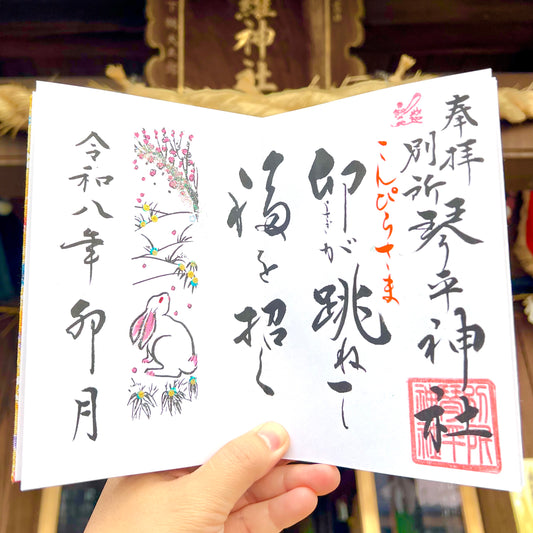 奉拝
別所琴平神社
こんぴらさま
卯が跳ねて
福を招く
令和八年 卯月
別所
琴平
神社
神社